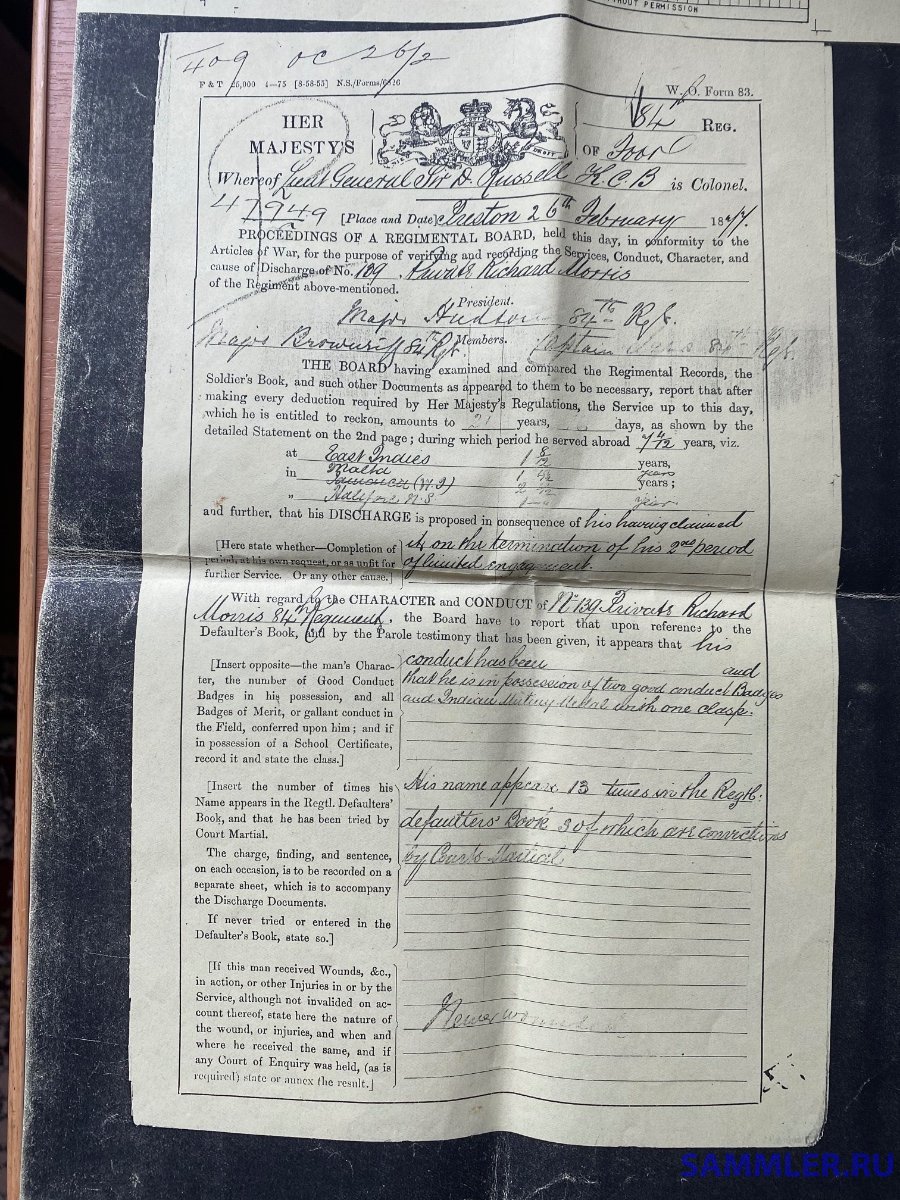 WITHOUT PERMISSION
409 OC 26/2
F & T 25,000 4—75 [8-58-53] N.S./Forms/6826
W. O. Form 83.
HER MAJESTY'S
84th REG.
OF Foot
Whereof Lieut General Sir D. Russell K.C.B is Colonel.
47949 [Place and Date] Preston 26th February 1877.
PROCEEDINGS OF A REGIMENTAL BOARD, held this day, in conformity to the
Articles of War, for the purpose of verifying and recording the Services, Conduct, Character, and
cause of Discharge of No. 139 Private Richard Morris
of the Regiment above-mentioned.
President.
Major Hudson 84th Rgt.
Members.
Major Brownrigg 84th Rgt. Captain 84th Rgt.
THE BOARD having examined and compared the Regimental Records, the
Soldier's Book, and such other Documents as appeared to them to be necessary, report that after
making every deduction required by Her Majesty's Regulations, the Service up to this day,
which he is entitled to reckon, amounts to 21 years, days, as shown by the
detailed Statement on the 2nd page; during which period he served abroad 7 4/12 years, viz.
at East Indies 1 8/12 years,
in Malta
Jamaica (W.I) years;
„ Halifax N.S
and further, that his DISCHARGE is proposed in consequence of his having claimed
[Here state whether—Completion of
period, at his own request, or as unfit for
further Service. Or any other cause.]
it on the termination of his 2nd period
of limited engagement.
With regard to the CHARACTER and CONDUCT of No 139 Private Richard
Morris 84th Regiment, the Board have to report that upon reference to the
Defaulter's Book, and by the Parole testimony that has been given, it appears that his
[Insert opposite—the man's Charac-
ter, the number of Good Conduct
Badges in his possession, and all
Badges of Merit, or gallant conduct in
the Field, conferred upon him; and if
in possession of a School Certificate,
record it and state the class.]
conduct has been and
that he is in possession of two good conduct Badges
and Indian Mutiny Medal with one clasp.
[Insert the number of times his
Name appears in the Regtl. Defaulters'
Book, and that he has been tried by
Court Martial.
The charge, finding, and sentence,
on each occasion, is to be recorded on a
separate sheet, which is to accompany
the Discharge Documents.
If never tried or entered in the
Defaulter's Book, state so.]
His name appears 13 times in the Regtl.
defaulters' Book 3 of which are convictions
by Courts Martial
[If this man received Wounds, &c.,
in action, or other Injuries in or by the
Service, although not invalided on ac-
count thereof, state here the nature of
the wound, or injuries, and when and
where he received the same, and if
any Court of Enquiry was held, (as is
required) state or annex the result.]
Never wounded
SAMMLER.RU